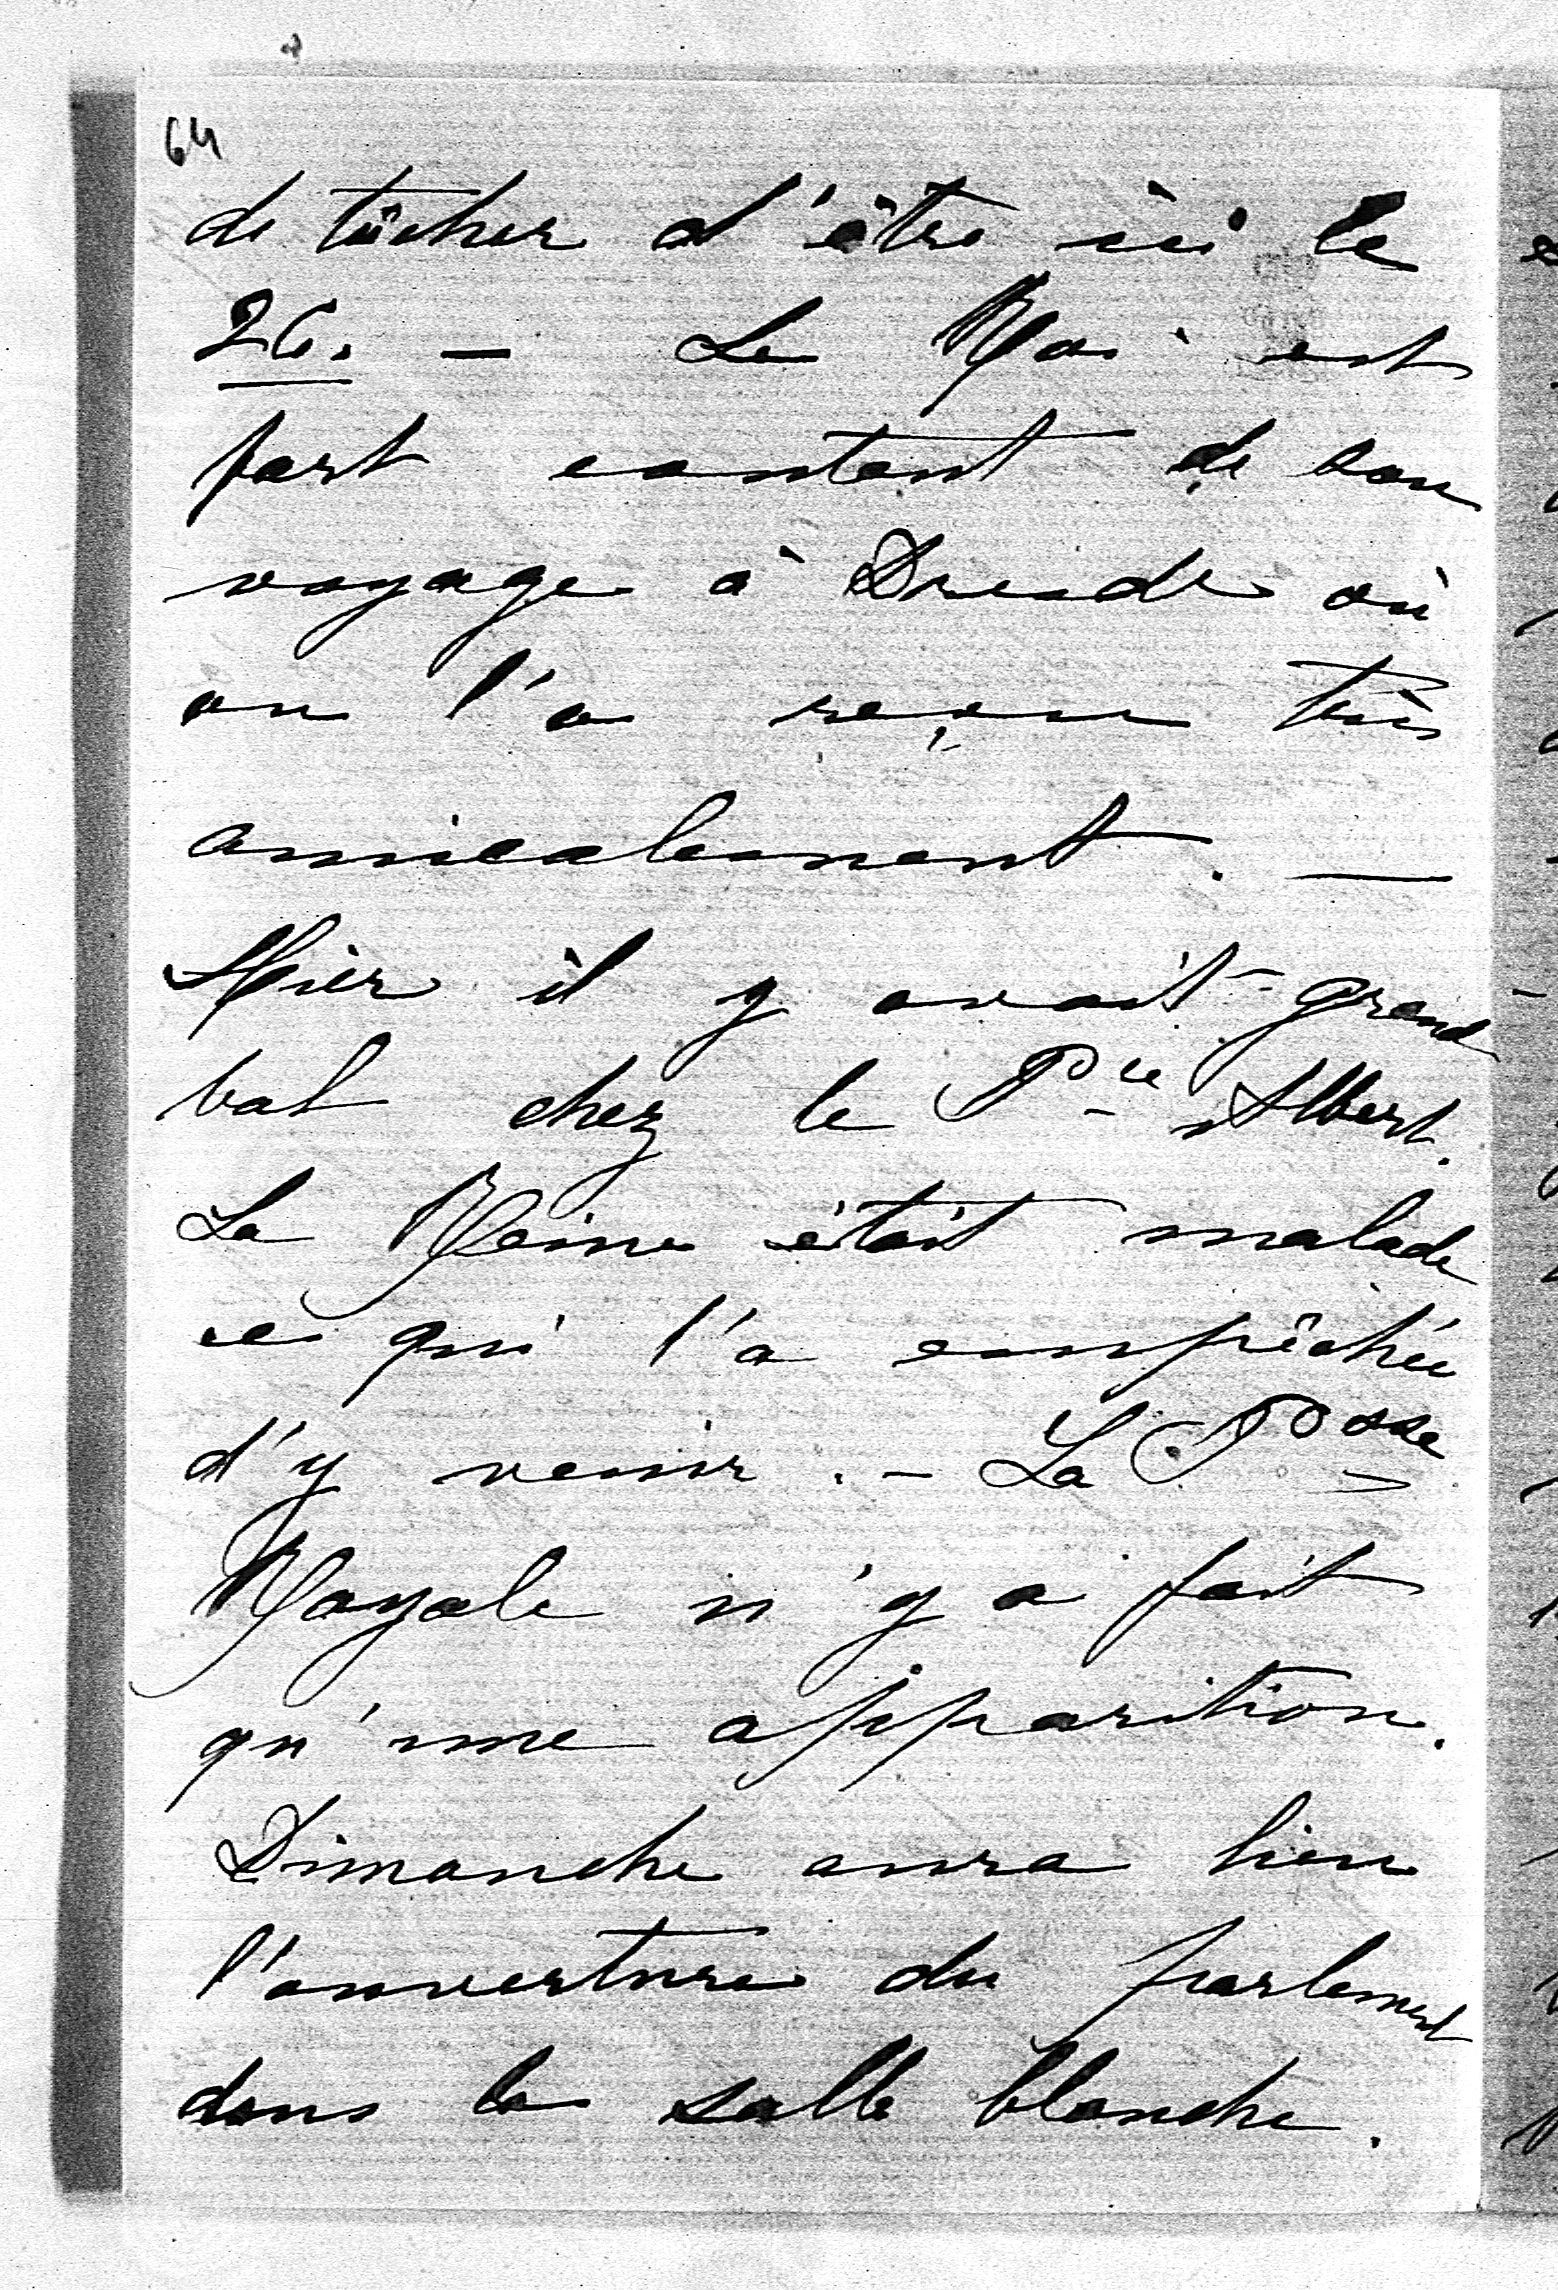 64
de tâcher d'être ici le
26. — Le Roi est
fort content de son
voyage à Dresde où
on l'a reçu très
amicalement. —
Hier il y avait grand
bal chez le Pce Albert.
La Reine était malade
ce qui l'a empêchée
d'y venir. — La Psse
Royale n'y a fait
qu'une apparition.
Dimanche aura lieu
l'ouverture du parlement
dans la salle blanche.